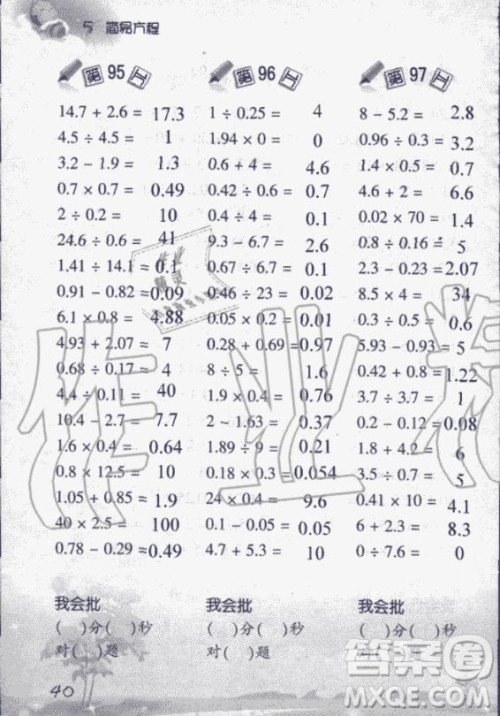 5 简易方程
第 95 天
14.7 + 2.6 = 17.3
4.5 ÷ 4.5 = 1
3.2 − 1.9 = 1.3
0.7 × 0.7 = 0.49
2 ÷ 0.2 = 10
24.6 ÷ 0.6 = 41
1.41 ÷ 14.1 = 0.1
0.91 − 0.82 = 0.09
6.1 × 0.8 = 4.88
4.93 + 2.07 = 7
0.68 ÷ 0.17 = 4
4.4 ÷ 0.11 = 40
10.4 − 2.7 = 7.7
1.6 × 0.4 = 0.64
0.8 × 12.5 = 10
1.05 + 0.85 = 1.9
40 × 2.5 = 100
0.78 − 0.29 = 0.49
我会批
( )分( )秒
对( )题
第 96 天
1 ÷ 0.25 = 4
1.94 × 0 = 0
0.6 + 4 = 4.6
0.42 ÷ 0.6 = 0.7
0.4 ÷ 4 = 0.1
9.3 − 6.7 = 2.6
0.67 − 0.6 = 0.07
0.46 ÷ 23 = 0.02
0.05 × 0.2 = 0.01
0.28 + 0.69 = 0.97
8 ÷ 5 = 1.6
1.9 × 0.4 = 0.76
2 − 1.63 = 0.37
1.89 ÷ 9 = 0.21
0.18 × 0.3 = 0.054
24 × 0.4 = 9.6
0.1 − 0.05 = 0.05
4.7 + 5.3 = 10
我会批
( )分( )秒
对( )题
第 97 天
8 − 5.2 = 2.8
0.96 ÷ 0.3 = 3.2
1.4 × 0.5 = 0.7
2.6 + 4 = 6.6
0.02 × 70 = 1.4
0.8 ÷ 0.16 = 5
2.3 − 0.23 = 2.07
8.5 × 4 = 34
3 ÷ 5 = 0.6
5.93 − 0.93 = 5
0.42 + 0.8 = 1.22
3.7 ÷ 3.7 = 1
0.2 − 0.12 = 0.08
1.8 + 4.2 = 6
3.5 ÷ 0.7 = 5
0.41 × 10 = 4.1
6 + 2.3 = 8.3
0 ÷ 7.6 = 0
我会批
( )分( )秒
对( )题
40
作业
答案圈
MXQE.COM